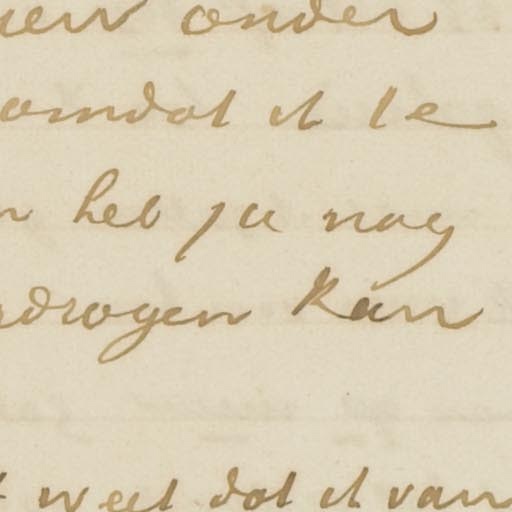 onder
omdat it te
heb ju nog
drogen kan
weet dat it van